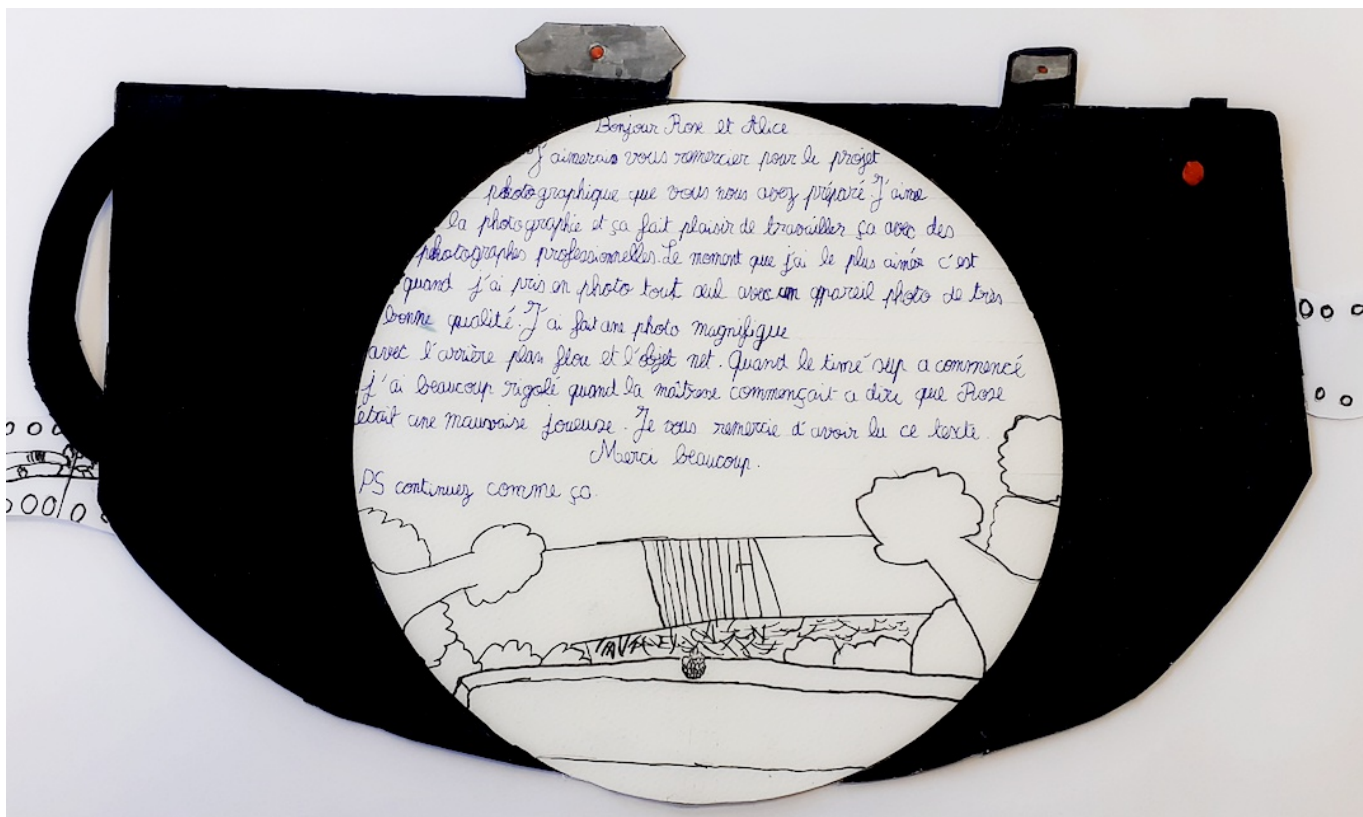 Bonjour Rose et Alice
J'aimerais vous remercier pour le projet
photographique que vous nous avez préparé. J'aime
la photographie et ça fait plaisir de travailler ça avec des
photographes professionnelles. Le moment que j'ai le plus aimée c'est
quand j'ai pris en photo tout seul avec un appareil photo de très
bonne qualité. J'ai fait une photo magnifique
avec l'arrière plan flou et l'objet net. Quand le time's up a commencé
j'ai beaucoup rigolé quand la maîtresse commençait a dire que Rose
était une mauvaise joueuse. Je vous remercie d'avoir lu ce texte.
Merci beaucoup.
PS continuez comme ça.